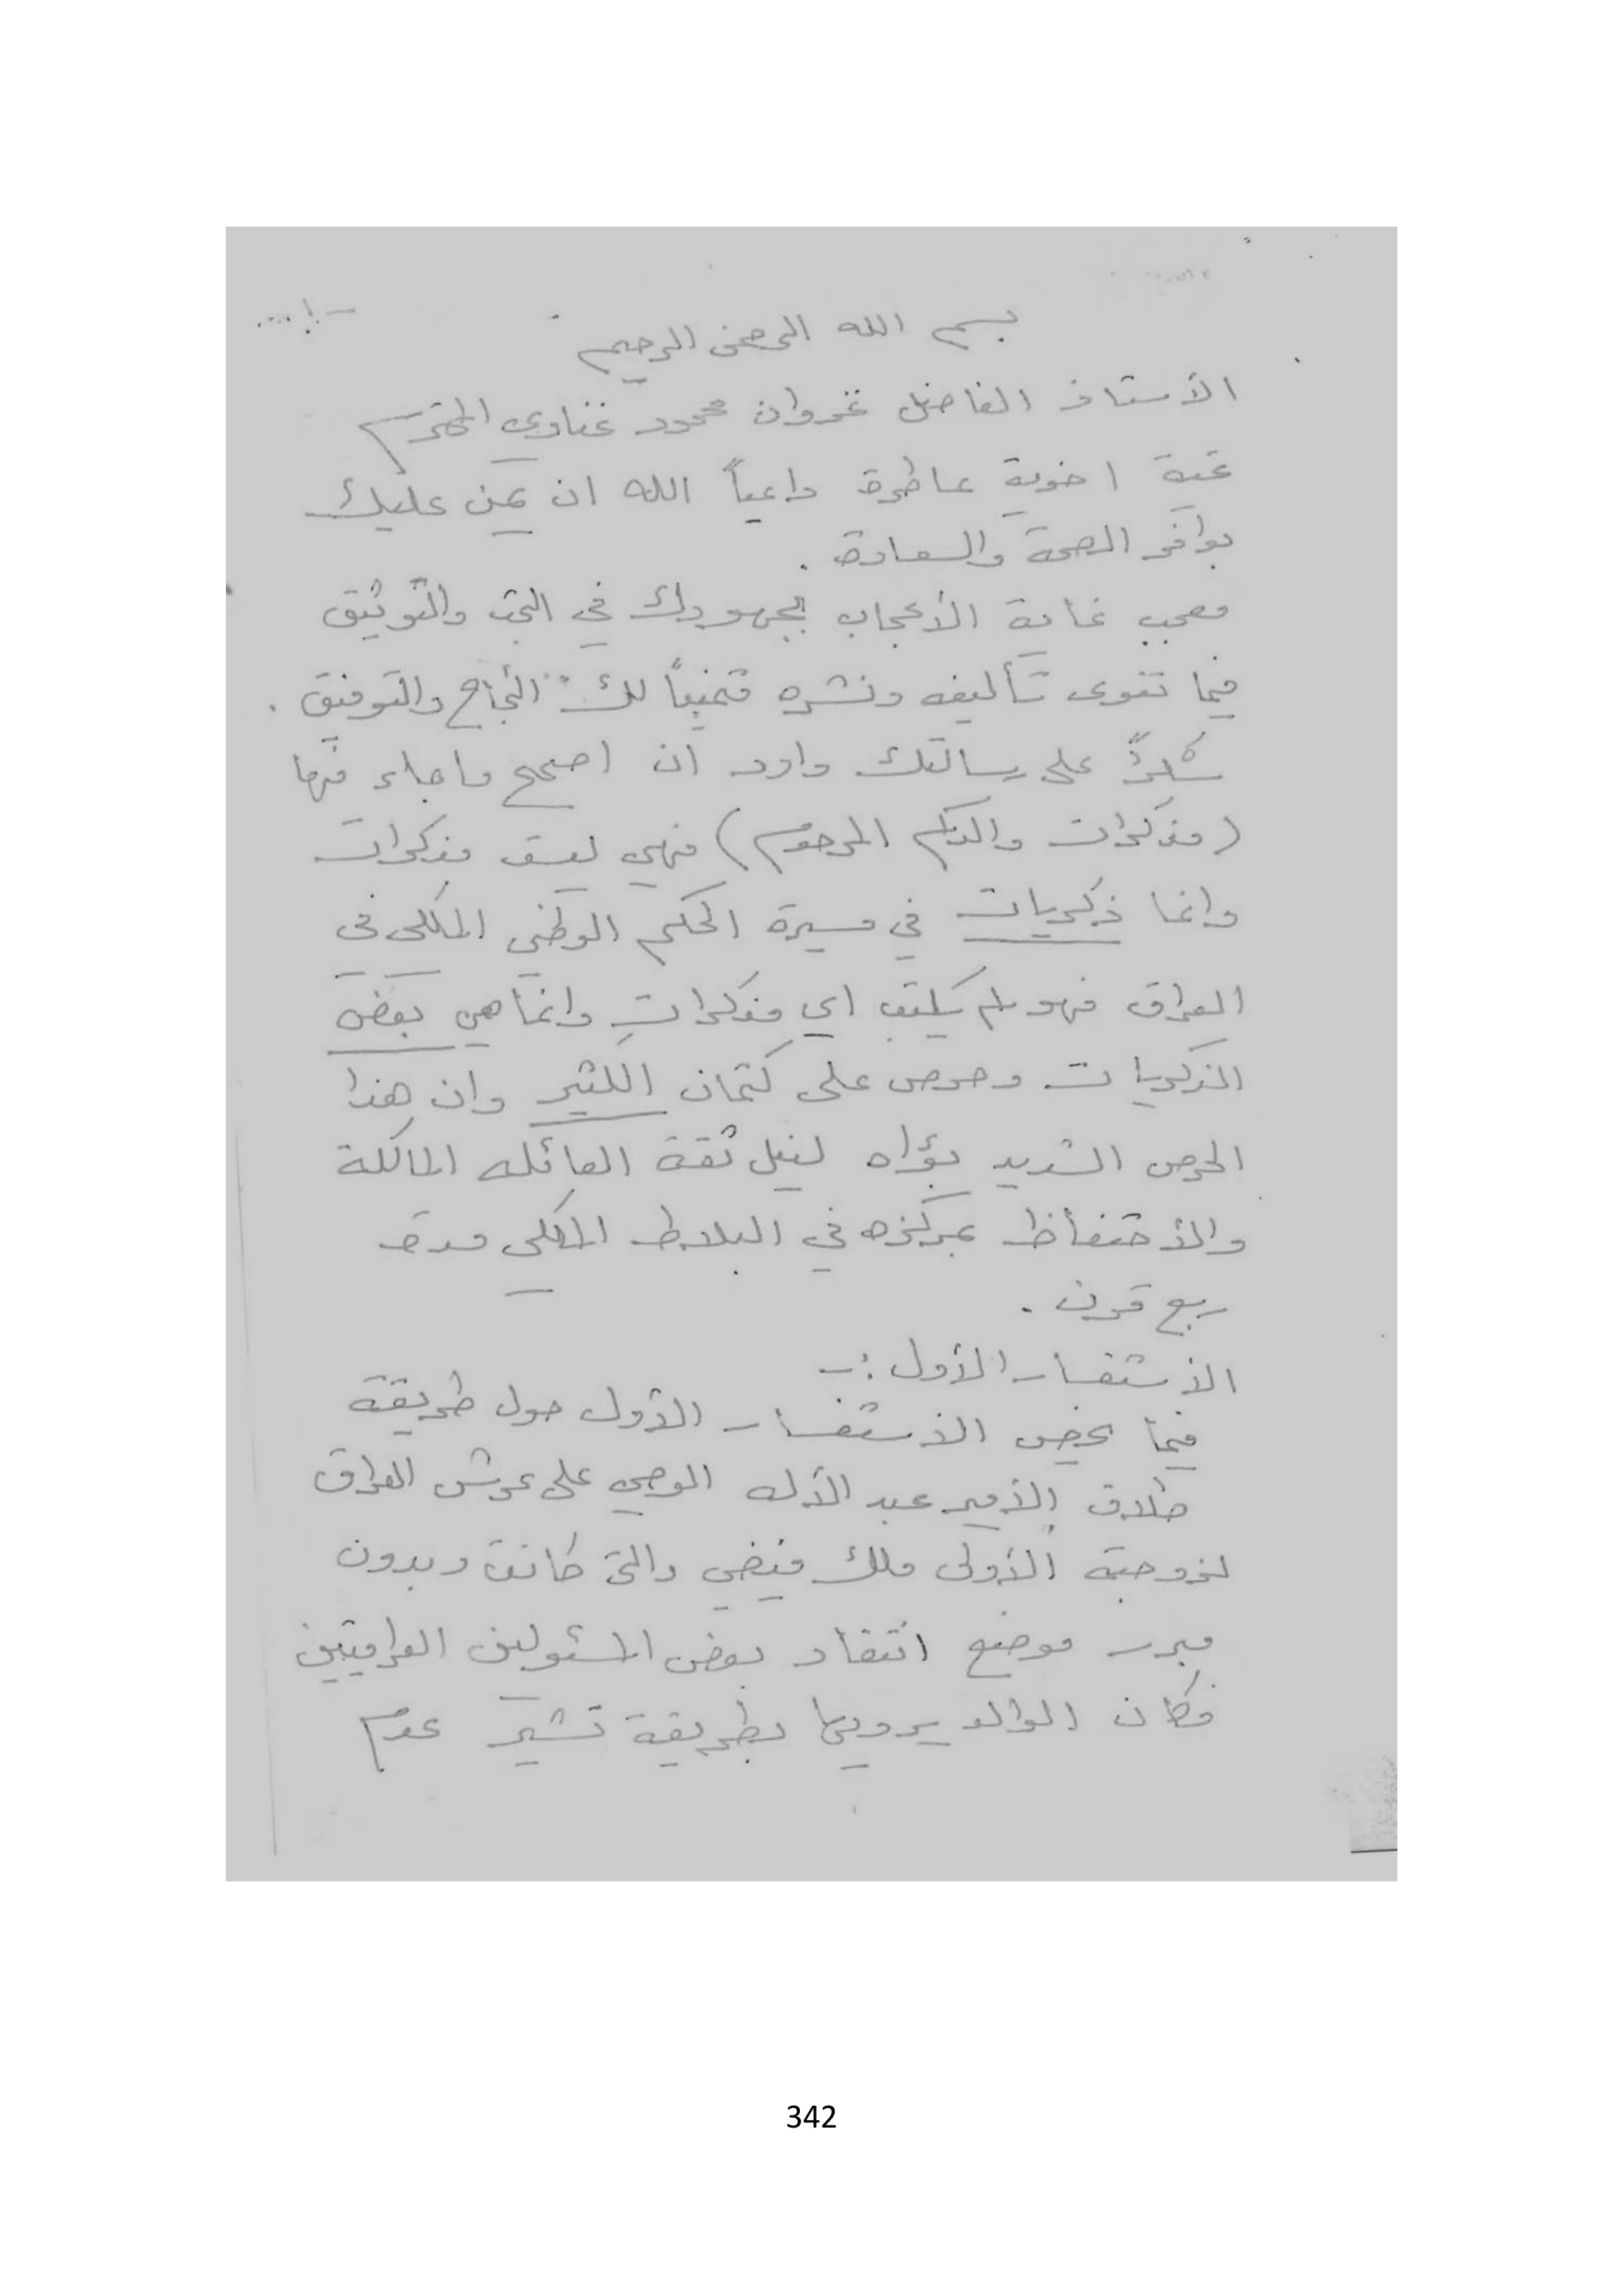 بسم الله الرحمن الرحيم
الأستاذ الفاضل غزوان محمود غناوي المحترم
تحية اخوية عاطرة داعياً الله ان يمن عليك
بوافر الصحة والسعادة .
معجب غاية الأعجاب بجهودك في البحث والتوثيق
فيما تنوي تأليفه ونشره متمنياً لك النجاح والتوفيق .
شكراً على رسالتك واود ان اصحح ما جاء فيها
(مذكرات والدكم المرحوم) فهي ليست مذكرات
وانما ذكريات في مسيرة الحكم الوطني الملكي في
العراق فهو لم يكتب اي مذكرات وانما هي بعض
الذكريات وحرص على كتمان الكثير وان هذا
الحرص الشديد بؤاه لنيل ثقة العائله المالكة
والأحتفاظ بمركزه في البلاط الملكي مدة
ربع قرن .
الأستفسار الأول :-
فيما يخص الأستفسار الأول حول طريقة
طلاق الأمير عبد الأله الوصي على عرش العراق
لزوجته الأولى ملك فيضي والتي كانت وبدون
مبرر موضع انتقاد بعض المسئولين العراقيين
فكان الوالد يرويها بطريقة تشير عدم
342